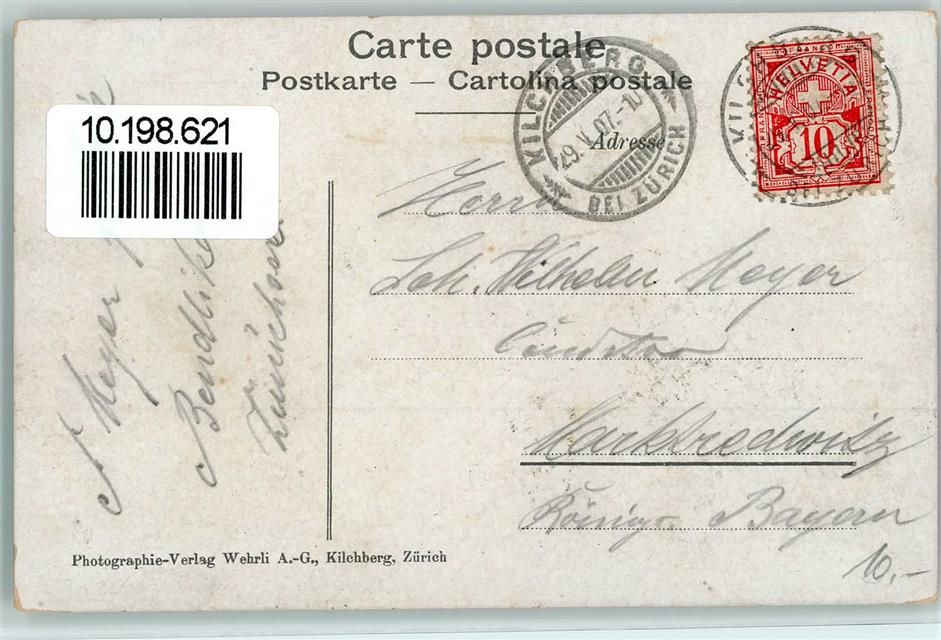 Carte postale
Postkarte — Cartolina postale
10.198.621
KILCHBERG
29.V.07.-10
BEI ZÜRICH
HELVETIA
10
Adresse
Herrn
Joh. Wilhelm Meyer
Conditor
Marktredwitz
Königr. Bayern
Meyer
Bendlikon
Zürichsee
Photographie-Verlag Wehrli A.-G., Kilchberg, Zürich
10.-